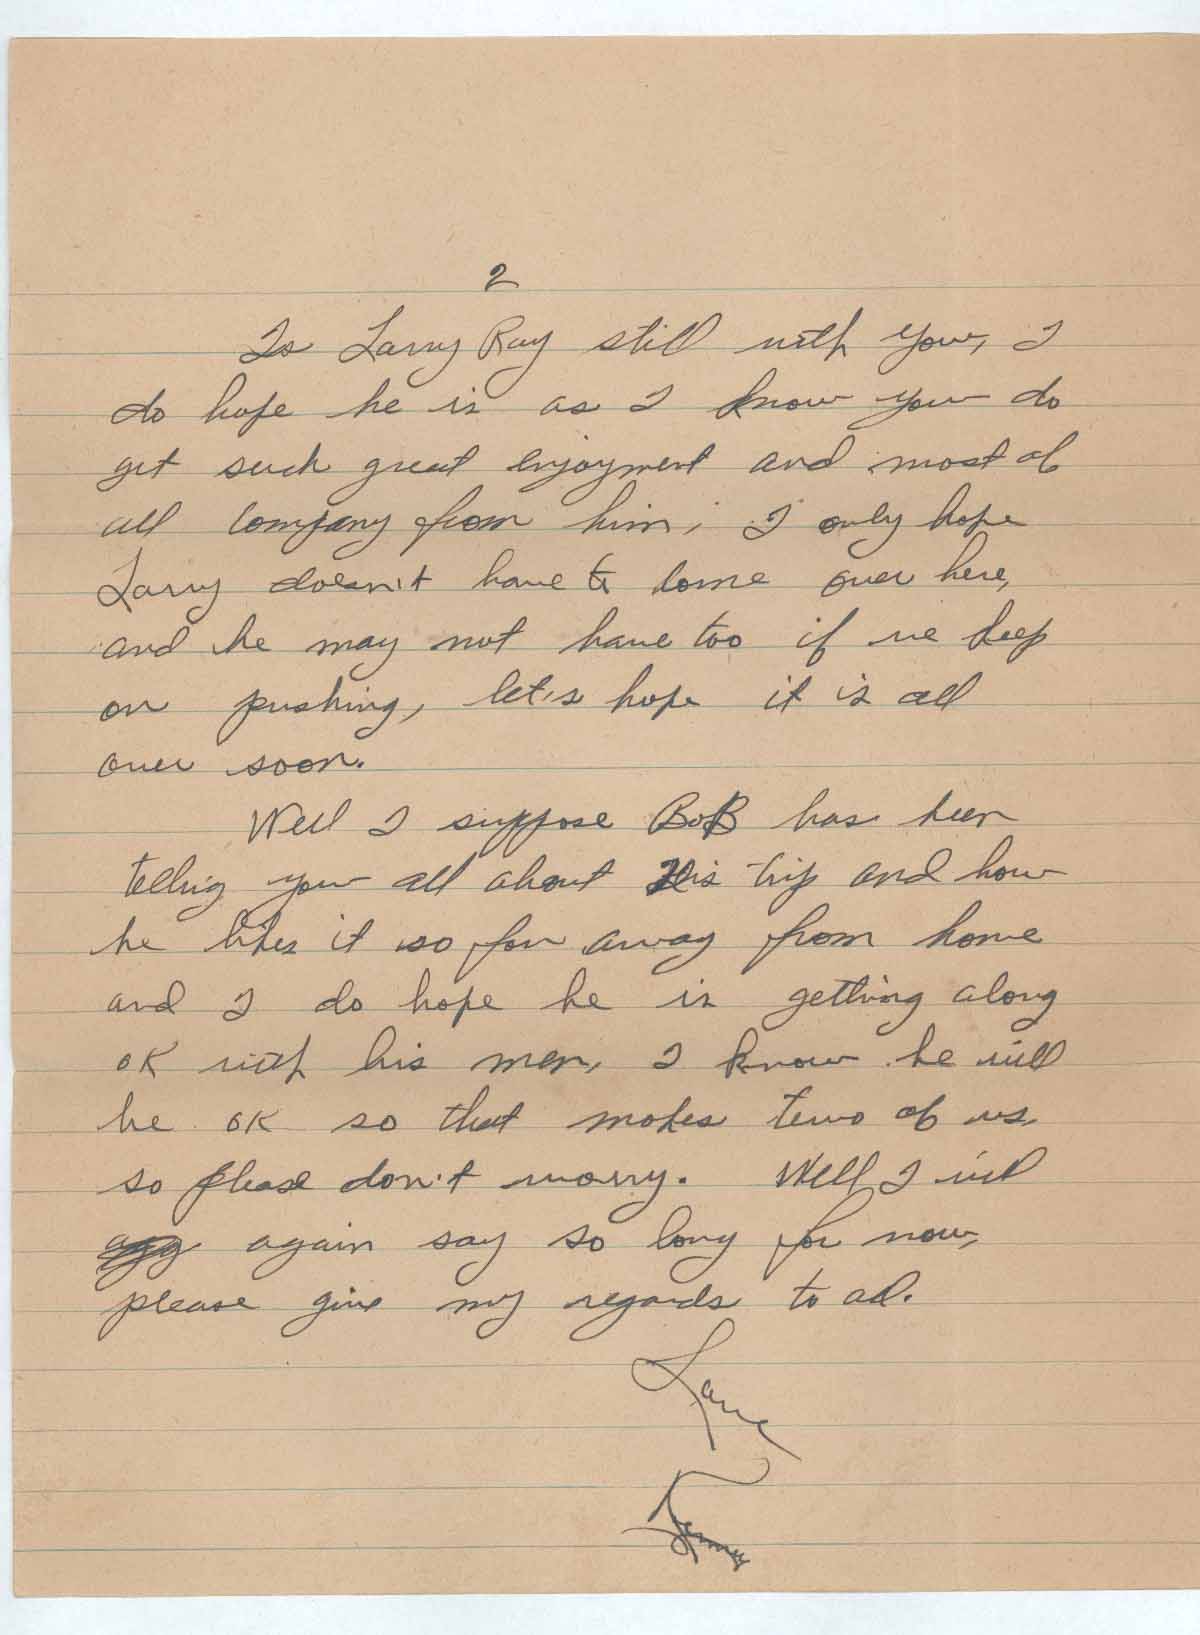 2
Is Larry Ray still with you, I
do hope he is as I know you do
get such great enjoyment and most of
all company from him, I only hope
Larry doesn't have to come over here,
and he may not have too if we keep
on pushing, let's hope it is all
over soon.
Well I suppose BoB has been
telling you all about His trip and how
he likes it so far away from home
and I do hope he is getting along
OK with his men, I know he will
be OK so that makes two of us,
so please don't worry. Well I will
again say so long for now,
please give my regards to all.
Love